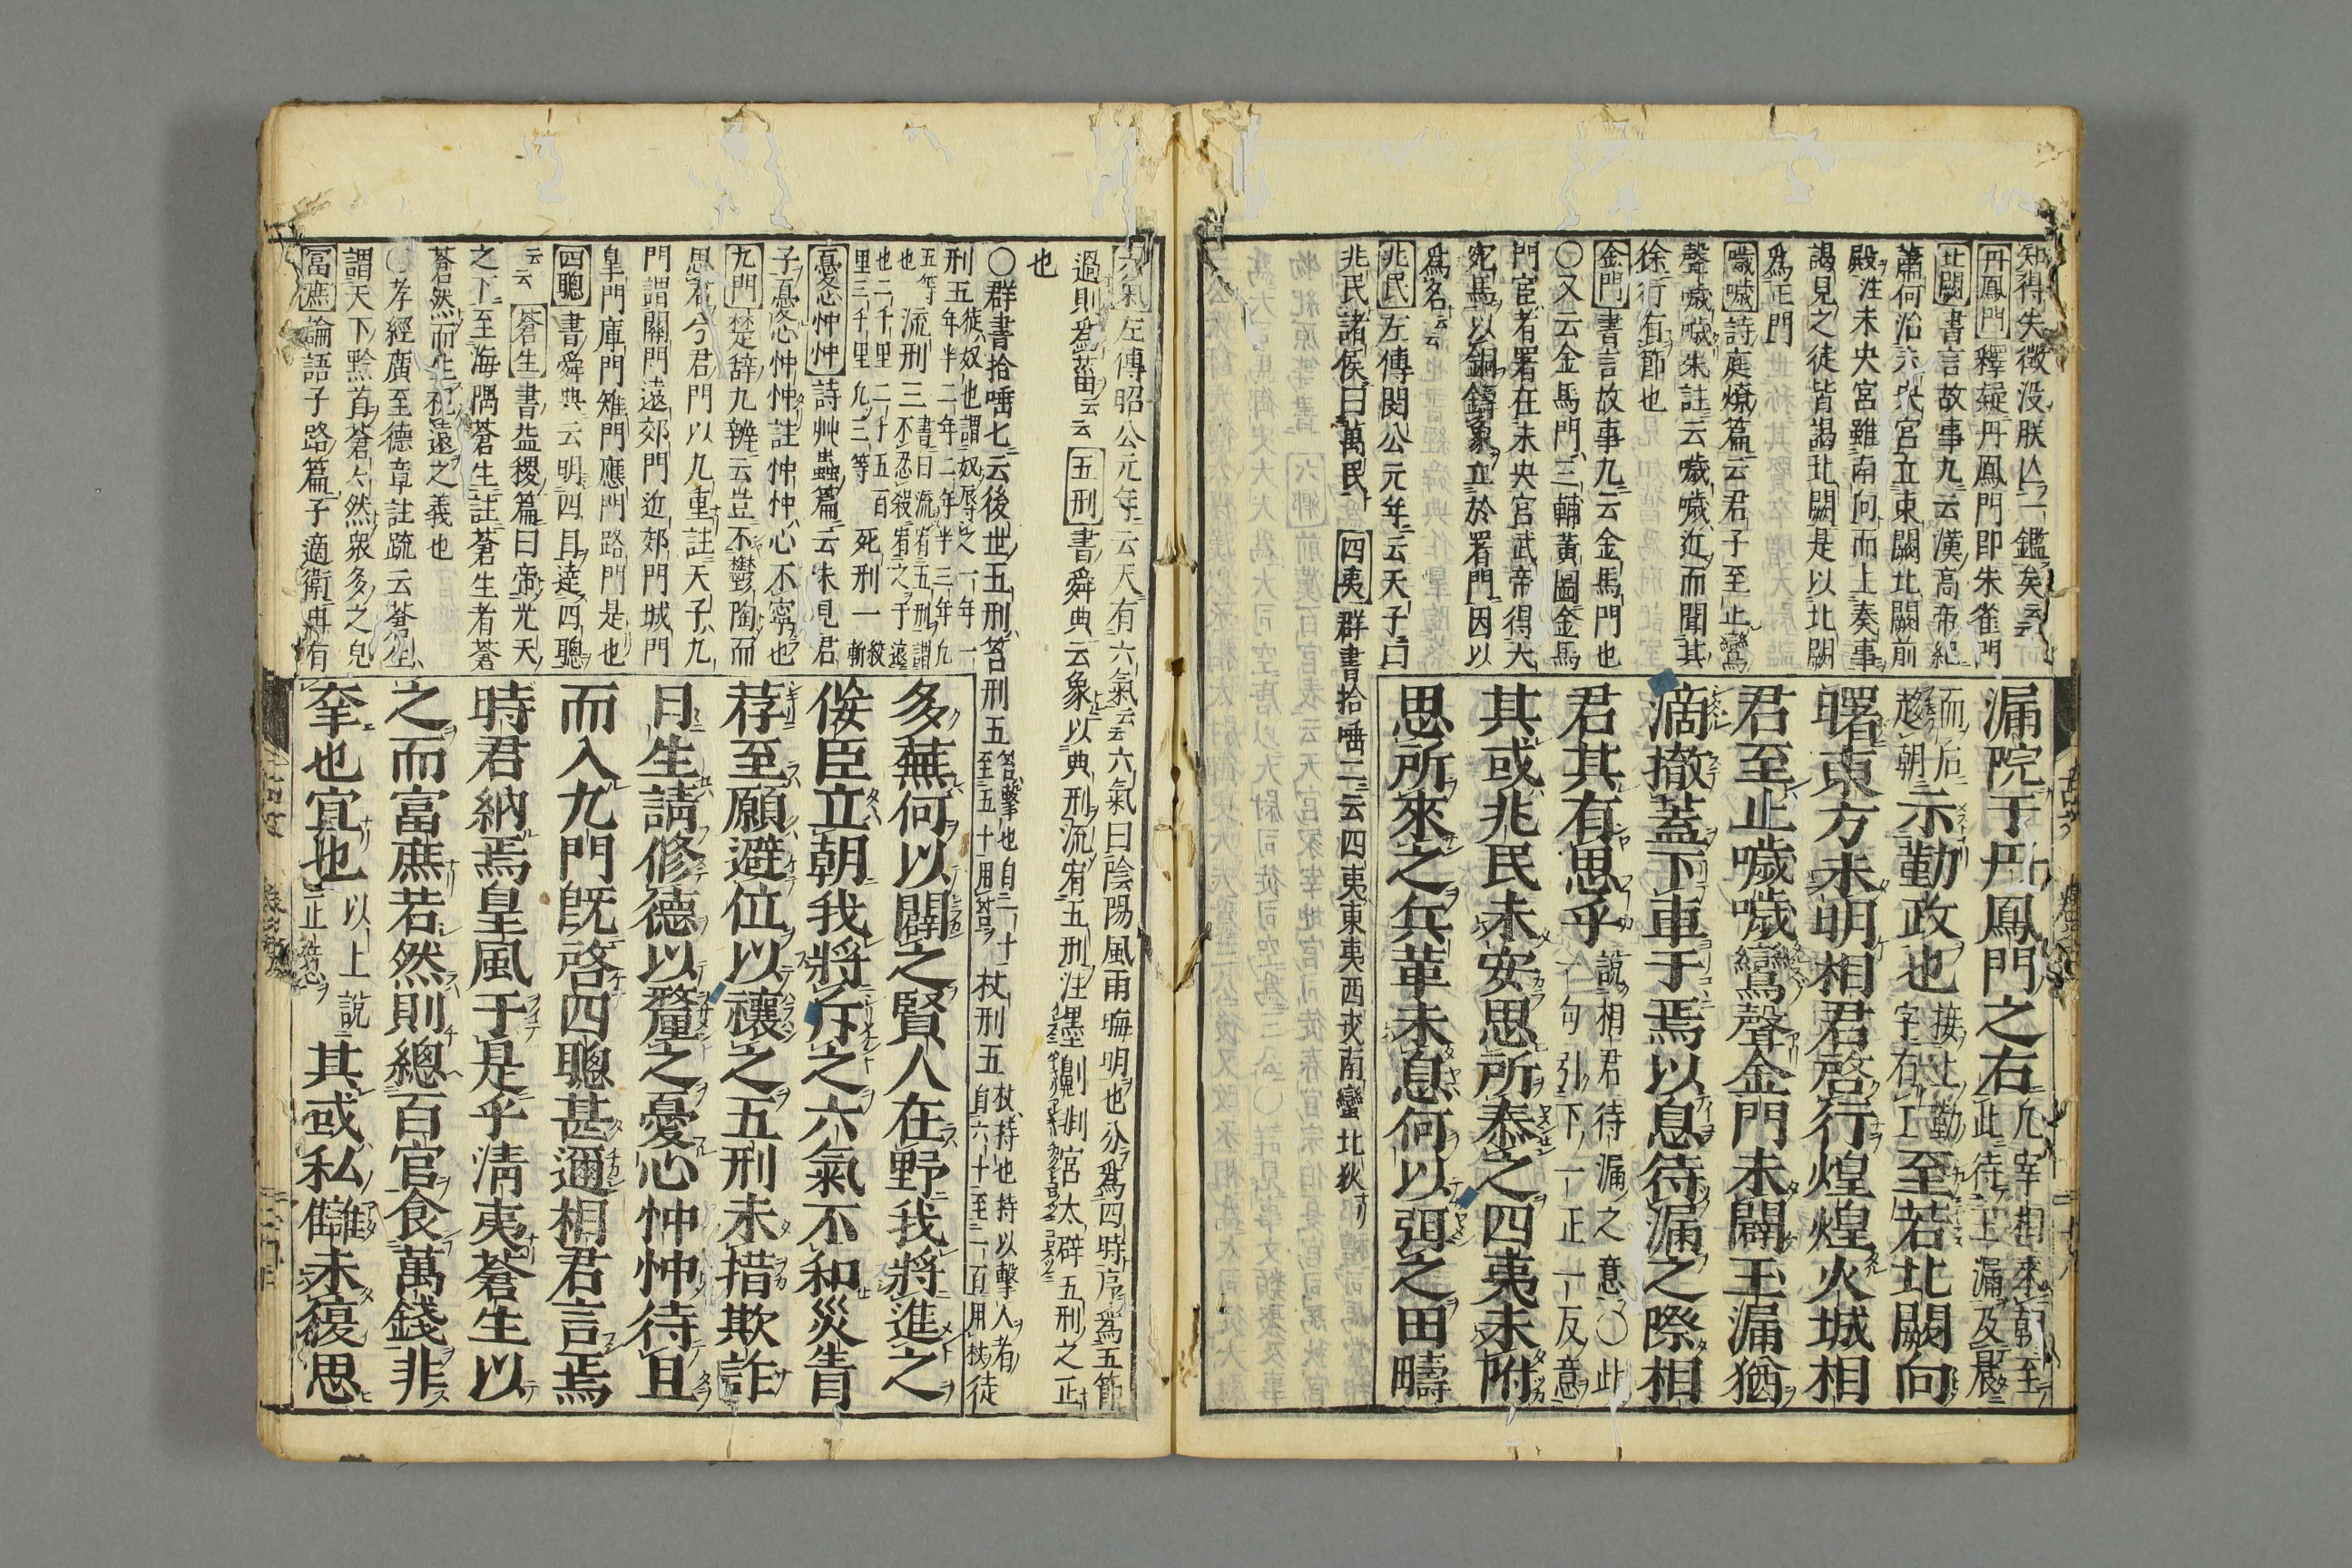 知得失徴没朕亾一鑑矣云云
丹鳳門釋疑丹鳳門即朱雀門
北闕書言故事九云漢高帝紀
蕭何治未央宮立東闕北闕前
殿注未央宮雖南向而上奏事
謁見之徒皆謁北闕是以北闕
爲正門
噦噦詩庭燎篇云君子至止鸞
聲噦噦朱註云噦噦近而聞其
徐行有節也
金門書言故事九云金馬門也
○又云金馬門三輔黃圖金馬
門宦者署在未央宮武帝得大
宛馬以銅鑄象立於署門因以
爲名云云
兆民左傳閔公元年云天子曰
兆民諸侯曰萬民 四夷群書拾唾二云四夷東夷西戎南蠻北狄
漏院于丹鳳門之右凢宰相來朝至
此待上漏及晨
而后
趍朝示勤政也接上勤
字有工至若北闕向
曙東方未明相君啓行煌煌火城相
君至止噦噦鸞聲金門未闢玉漏猶
滴撤蓋下車于焉以息待漏之際相
君其有思乎說相君待漏之意○此
一句引下一正一反意
其或兆民未安思所泰之四夷未附
思所來之兵革未息何以弭之田疇
六氣左傳昭公元年云天有六氣云云六氣曰陰陽風雨晦明也分爲四時序爲五節
過則爲菑云云 五刑書舜典云象以典刑流宥五刑注墨劓剕宮大辟五刑之正
也
○群書拾唾七云後世五刑笞刑五笞擊也自二十
至五十用笞杖刑五杖持也持以擊人者
自六十至一百用杖徒
刑五徒奴也謂奴辱之一年一
年半二年二年半三年凢
五等
也流刑三書曰流宥五刑謂
不忍殺宥之于遠
也二千里二千五百
里三千里凢三等死刑一絞
斬
憂心忡忡詩艸蟲篇云未見君
子憂心忡忡註忡忡心不寧也
九門楚辞九辨云豈不鬱陶而
思君兮君門以九重註天子九
門謂關門遠郊門近郊門城門
皐門庫門雉門應門路門是也
四聰書舜典云明四目達四聰
云云 蒼生書益稷篇曰帝光天
之下至海隅蒼生註蒼生者蒼
蒼然而生視遠之義也
○孝經廣至德章註疏云蒼生
謂天下黔首蒼蒼然衆多之皃
冨庶論語子路篇子適衛冉有
多蕪何以闢之賢人在野我將進之
佞臣立朝我將斥之六氣不和災眚
荐至願避位以禳之五刑未措欺詐
日生請修德以釐之憂心忡忡待旦
而入九門旣啓四聰甚邇相君言焉
時君納焉皇風于是乎淸夷蒼生以
之而富庶若然則總百官食萬錢非
㚔也宜也以上說
其或私讎未復思